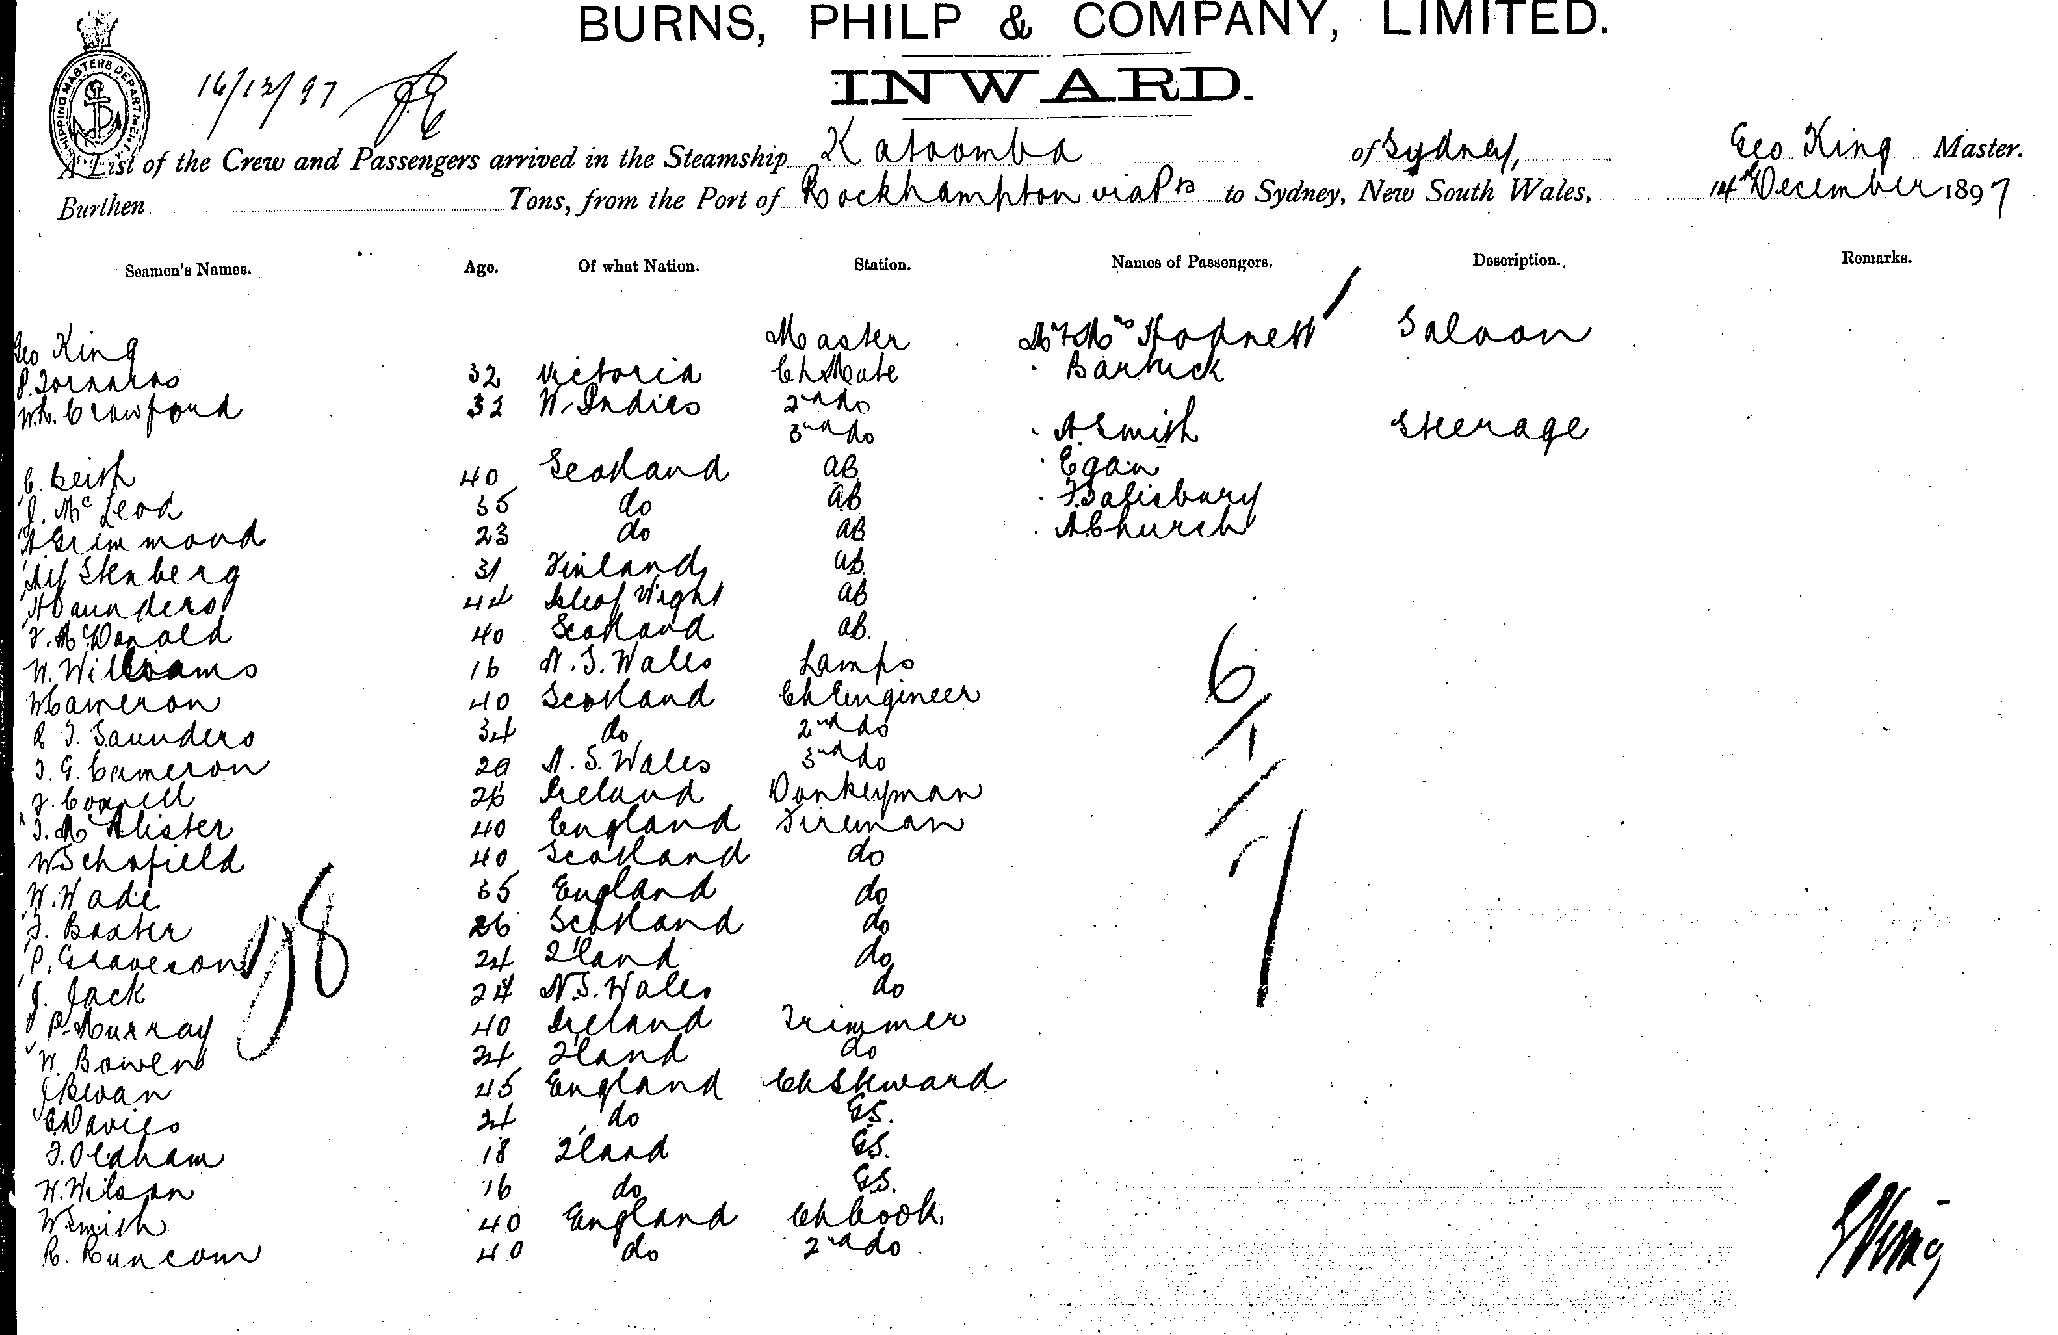 BURNS, PHILP & COMPANY, LIMITED.
INWARD.
16/12/97
A List of the Crew and Passengers arrived in the Steamship Katoomba of Sydney, Geo King Master.
Burthen Tons, from the Port of Rockhampton via Pts to Sydney, New South Wales, 14th December 1897
Seamen's Names. Age. Of what Nation. Station. Names of Passengers. Description. Remarks.
Geo King Master Mr & Mrs Hodnett Saloon
32 Victoria Ch Mate Barbick
Wm. Crawford 32 W. Indies 2nd do
3rd do A Smith Steerage
C. Keith 40 Scotland AB Egan
J. McLeod 35 do AB F. Salisbury
A Grimmond 23 do AB A Church
Alf Stenberg 31 Finland AB
H Saunders 44 Isle of Wight AB
F. McDonald 40 Scotland AB.
W. Williams 16 N. S. Wales Lamps
W Cameron 40 Scotland Ch Engineer
R J. Saunders 34 do 2nd do
J. G. Cameron 29 N. S. Wales 3rd do
26 Ireland Donkeyman
J. McAlister 40 England Fireman
W Schofield 40 Scotland do
W. Wade 35 England do
J. Baxter 26 Scotland do
P. Graveson 24 Z'land do
J. Jack 24 N.S. Wales do
P. Murray 40 Ireland Trimmer
W. Bowen 24 Z'land do
J Bevan 45 England Ch Steward
C Davies 21 do G.S.
J. Oldham 18 Z'land G.S.
W. Wilson 16 do G.S.
W Smith 40 England Ch Cook.
R. Runcom 40 do 2nd do
6
1
7
28
G King